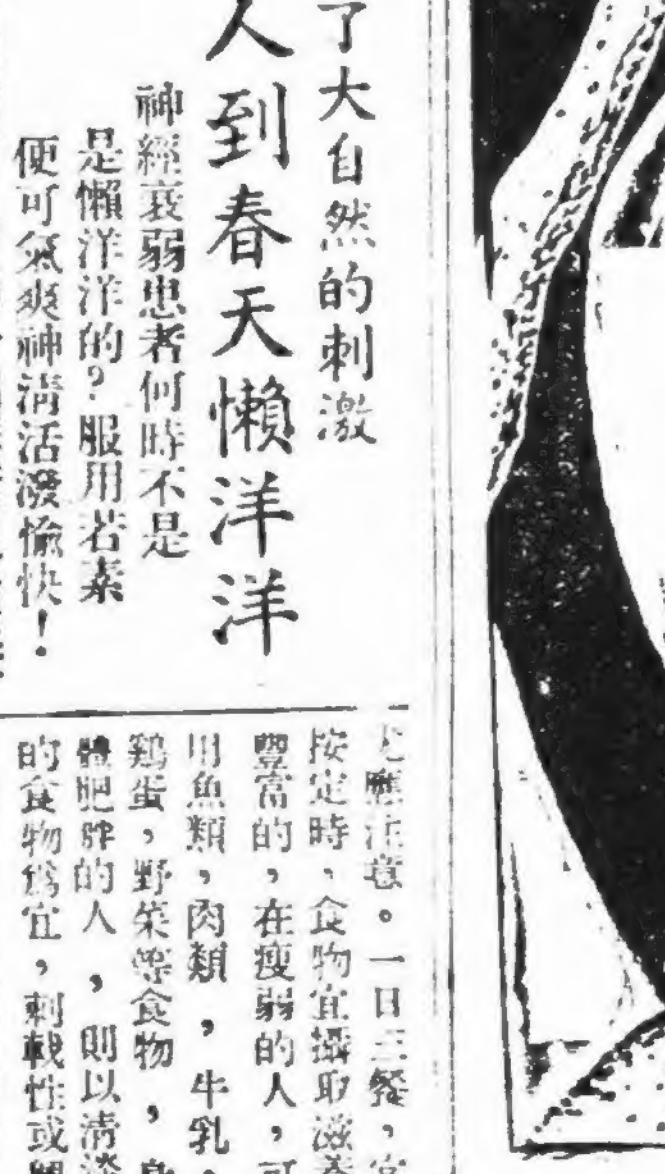 了大自然的刺激
人到春天懶洋洋
神經衰弱患者何時不是
是懶洋洋的?服用若素
便可氣爽神淸活潑愉快!
應注意。一日三餐,
按定時、食物宜攝取滋養
豐富的,在瘦弱的人,可
用魚類,肉類,牛乳,
鷄蛋,野菜等食物,身
體肥胖的人,則以淸淡
的食物爲宜,刺戟性或